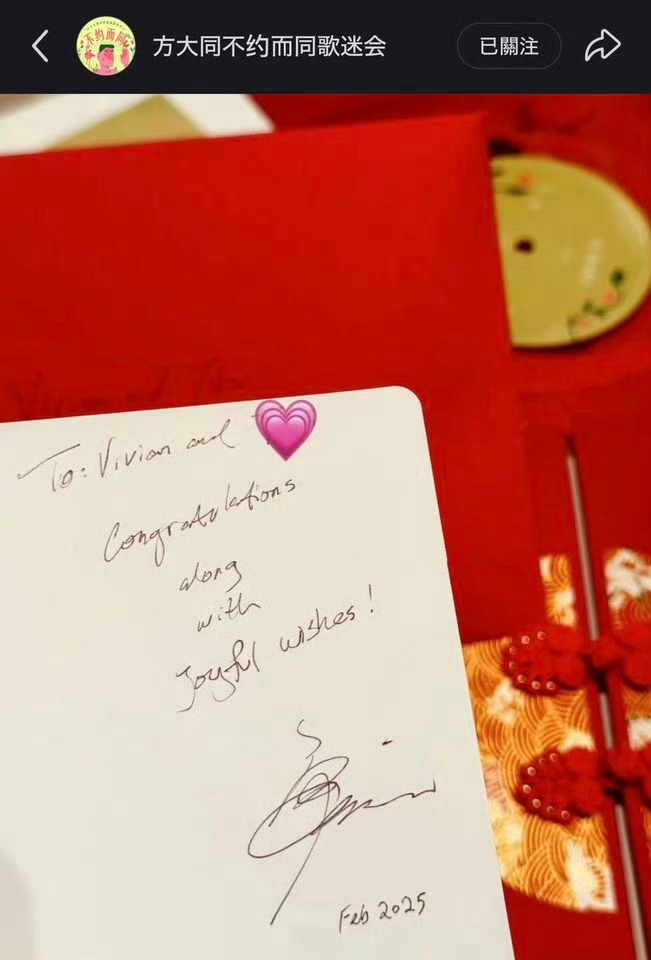 不约而同
方大同不约而同歌迷会
已關注
To: Vivian and
Congratulations
along
with
Joyful wishes!
Feb 2025